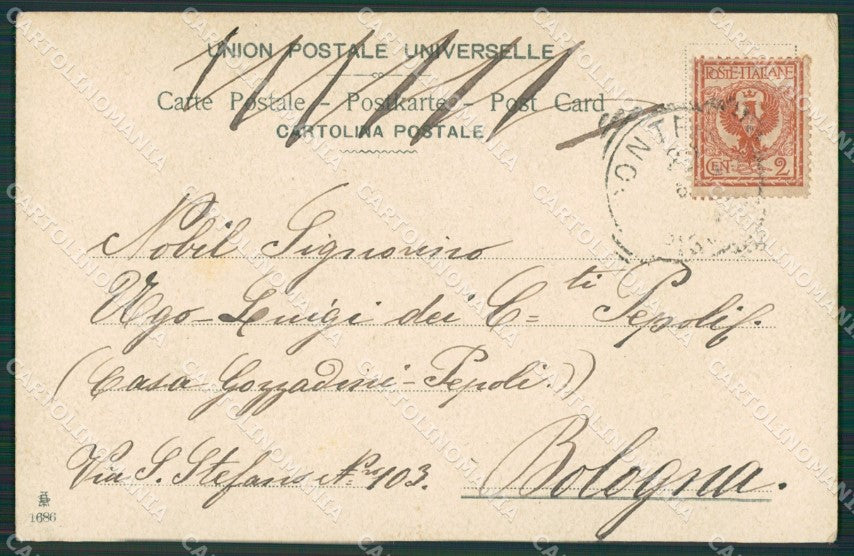 UNION POSTALE UNIVERSELLE
Carte Postale - Postkarte - Post Card
CARTOLINA POSTALE
POSTE ITALIANE
CENT 2
Nobil Signorino
Ugo-Luigi dei C=ti Pepoli
(Casa Gozzadini-Pepoli.)
Via S. Stefano N.ro 103.
Bologna.
1686
CARTOLINOMANIA